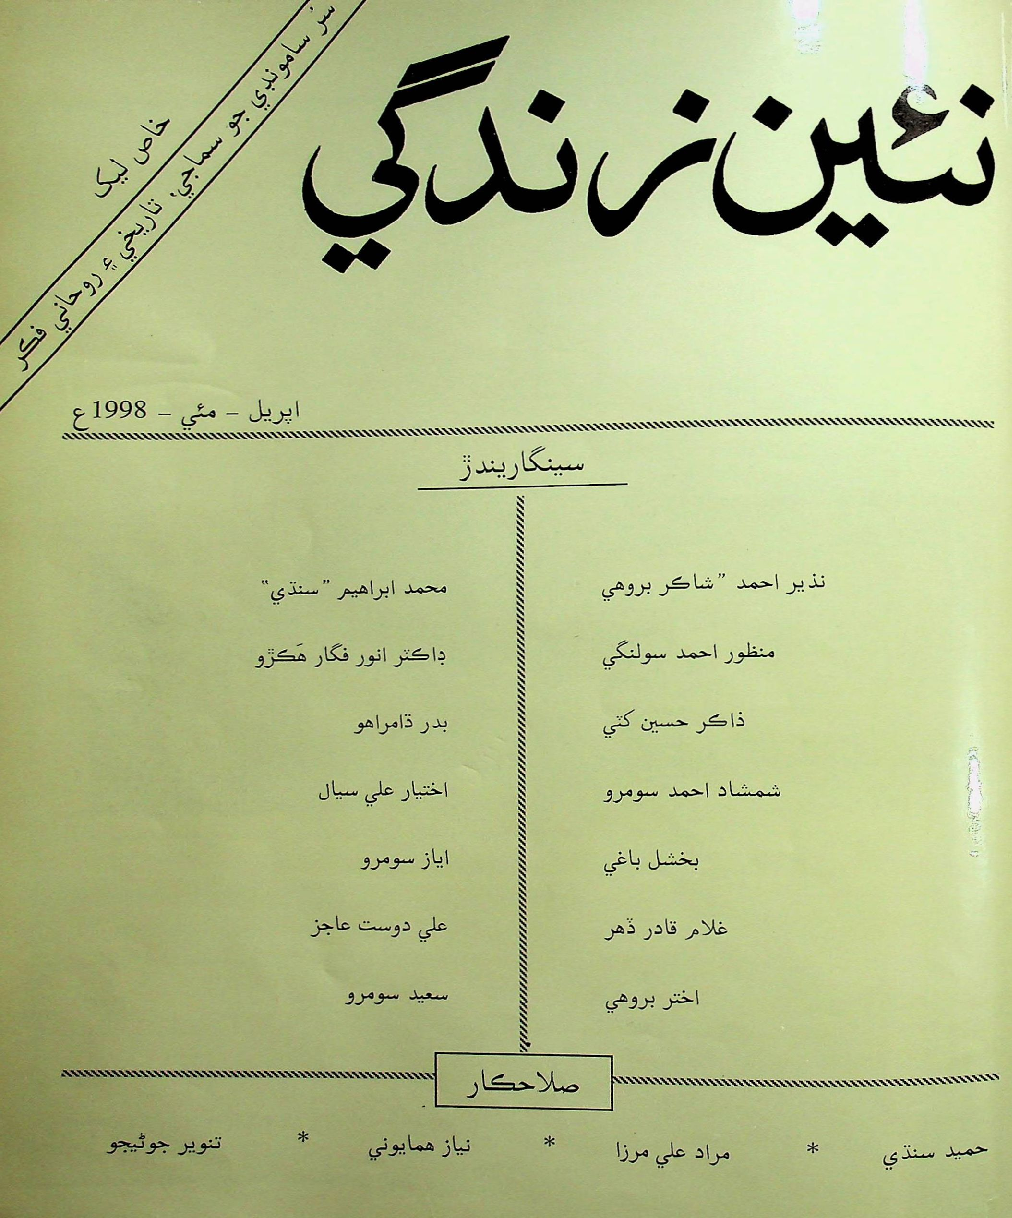 نئين زندگي
خاص ليک
سُر سامونڊي جو سماجي، تاريخي ۽ روحاني فڪر
اپريل – مئي – 1998ع
سينگاريندڙ
نذير احمد ”شاڪر بروهي
منظور احمد سولنگي
ذاڪر حسين کٽي
شمشاد احمد سومرو
بخشل باغي
غلام قادر ڏهر
اختر بروهي
محمد ابراهيم ”سنڌي“
ڊاڪٽر انور فگار هَڪڙو
بدر ڌامراهو
اختيار علي سيال
اياز سومرو
علي دوست عاجز
سعيد سومرو
صلاحڪار
حميد سنڌي * مراد علي مرزا * نياز همايوني * تنوير جوڻيجو